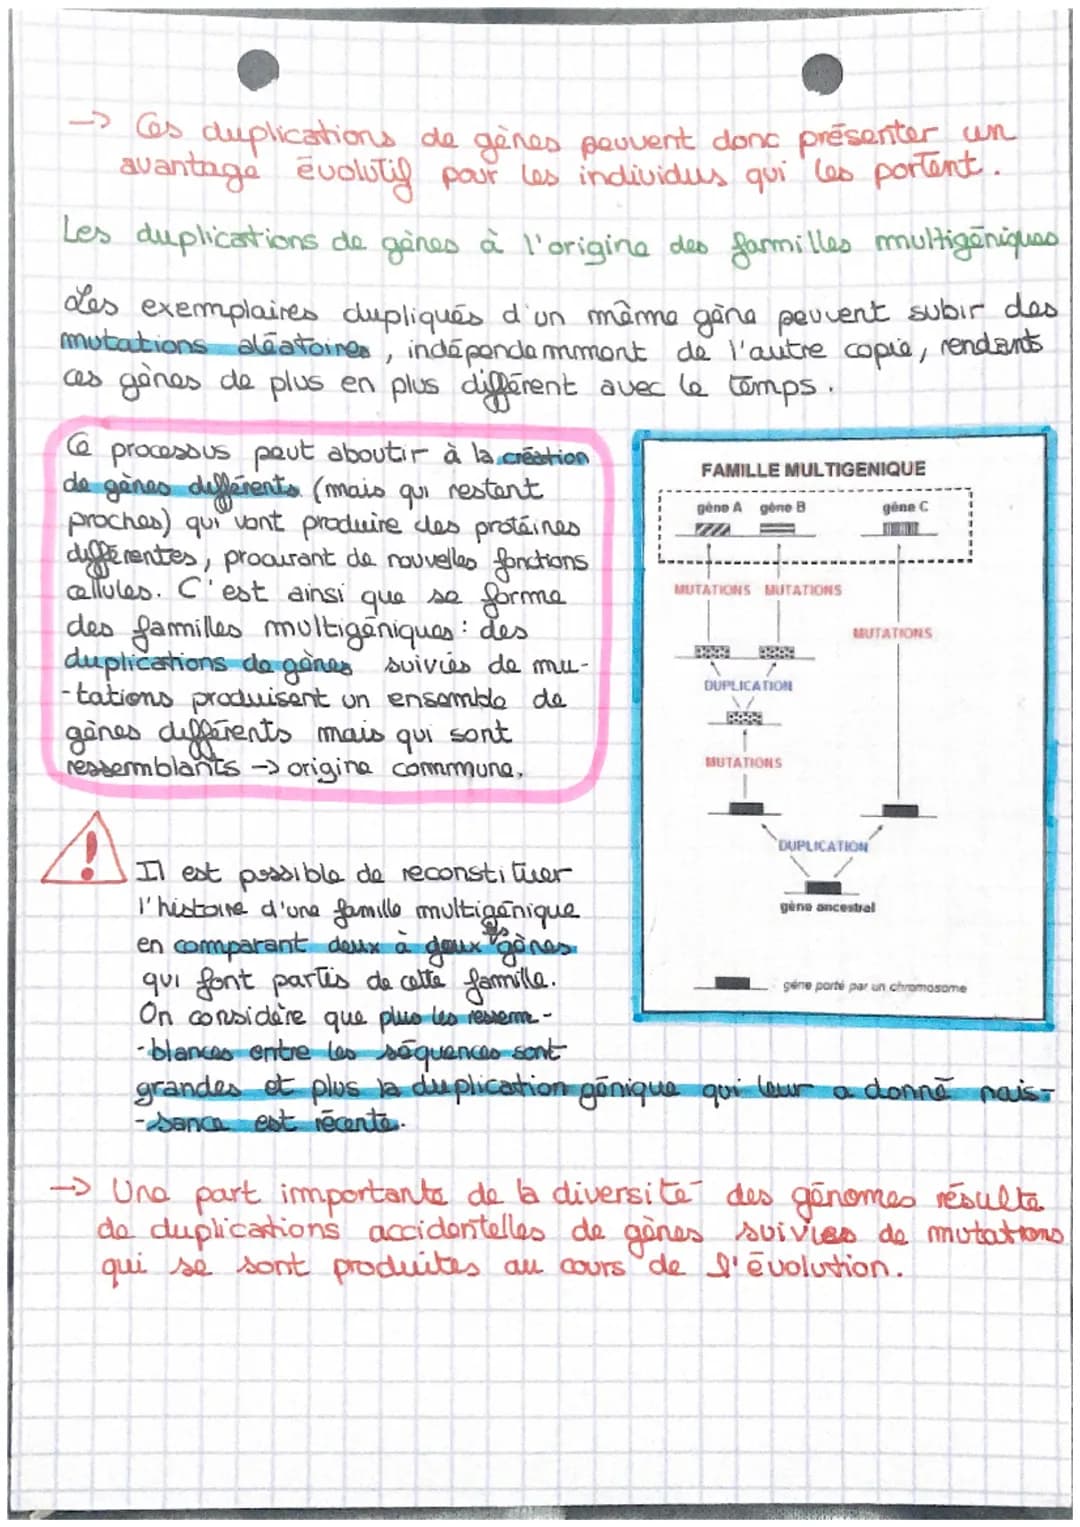 -> Ces duplications de gènes peuvent donc présenter un
avantage évolutif pour les individus qui les portent.
Les duplications de gènes à l'origine des familles multigéniques
Les exemplaires dupliqués d'un même gène peuvent subir des
mutations aléatoires, indépendamment de l'autre copie, rendants
ces gènes de plus en plus différent avec le temps.
Ce processus peut aboutir à la création
de gènes différents (mais qui restent
proches) qui vont produire des protéines
différentes, procurant de nouvelles fonctions
cellules. C'est ainsi que se forme
des familles multigéniques : des
duplications de gènes suivies de mu-
-tations produisent un ensemble de
gènes différents mais qui sont
ressemblants -> origine commune.
FAMILLE MULTIGENIQUE
gène A gène B gène C
MUTATIONS MUTATIONS
MUTATIONS
DUPLICATION
MUTATIONS
DUPLICATION
gène ancestral
gène porté par un chromosome
!
Il est possible de reconstituer
l'histoire d'une famille multigénique
en comparant deux à deux les gènes
qui font partis de cette famille.
On considère que plus les ressem-
-blances entre les séquences sont
grandes et plus la duplication génique qui leur a donné nais-
-sance est récente.
-> Une part importante de la diversité des génomes résulte
de duplications accidentelles de gènes suivies de mutations
qui se sont produites au cours de l'évolution.